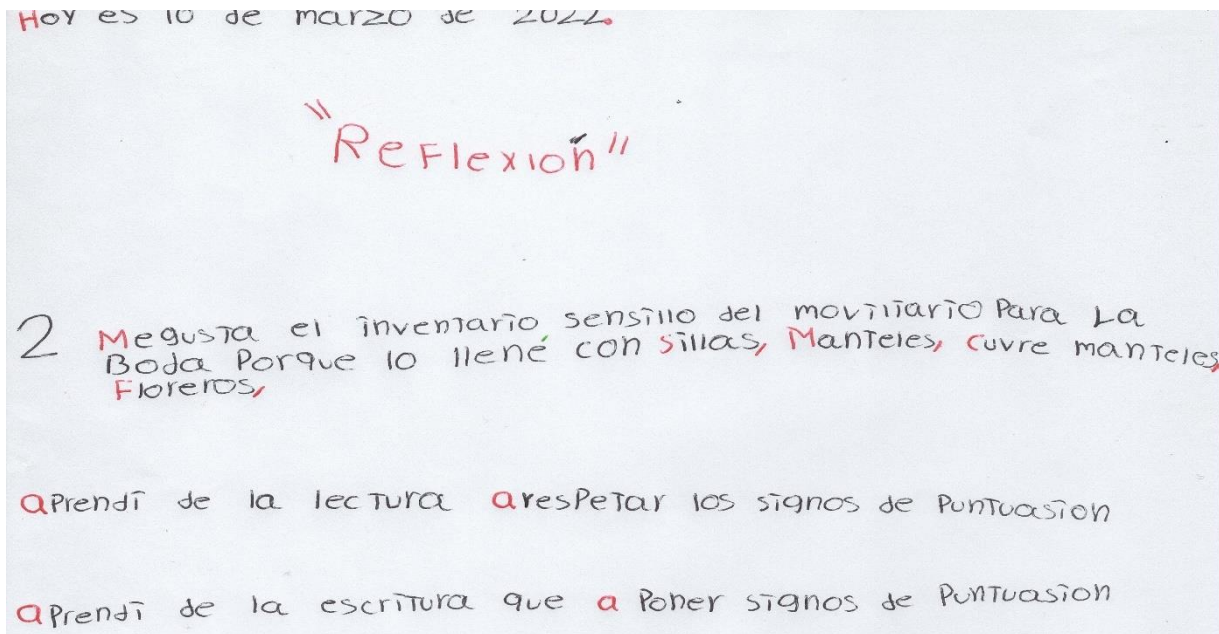 Hoy es 10 de marzo de 2022.
"Reflexión"
2 Megusta el inventario sensillo del moviliario Para La
Boda Porque lo llené con sillas, Manteles, cuvre manteles,
Floreros,
aprendí de la lectura arespetar los signos de Puntuasion
aprendi de la escritura que a Poner signos de Puntuasion